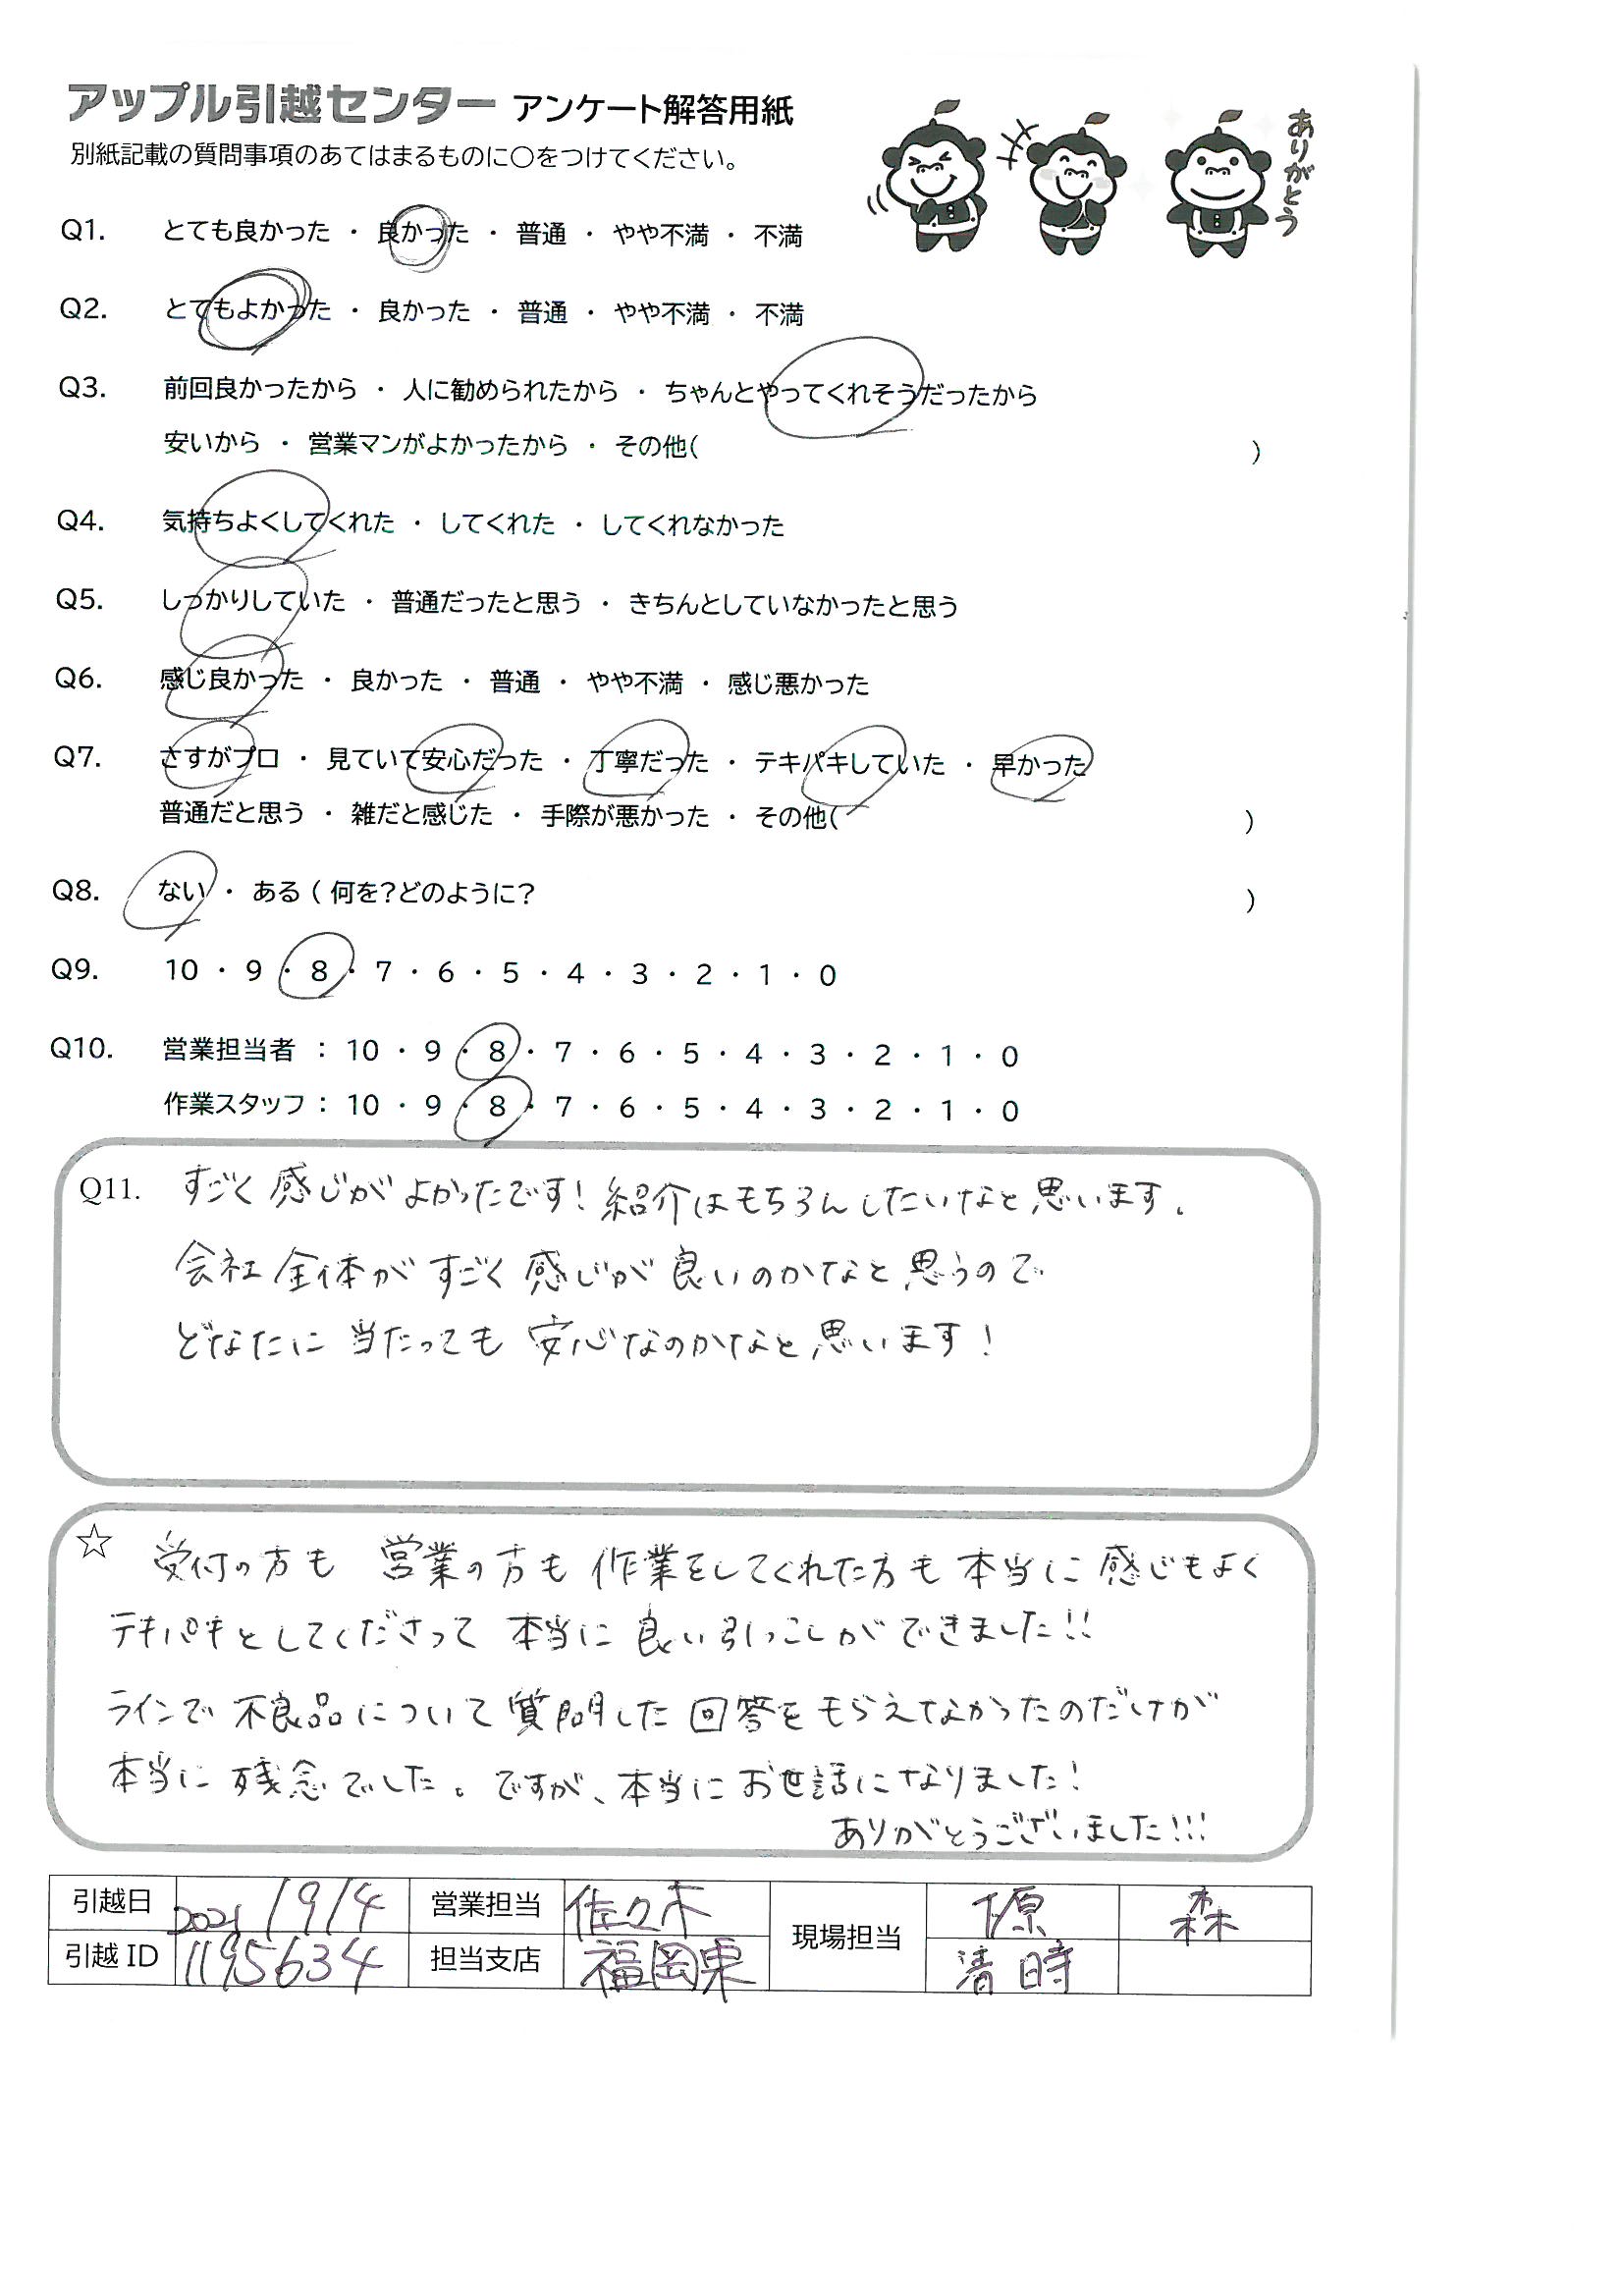 アップル引越センター アンケート解答用紙
ありがとう
別紙記載の質問事項のあてはまるものに○をつけてください。
Q1. とても良かった ・ 良かった ・ 普通 ・ やや不満 ・ 不満
Q2. とてもよかった ・ 良かった ・ 普通 ・ やや不満 ・ 不満
Q3. 前回良かったから ・ 人に勧められたから ・ ちゃんとやってくれそうだったから
安いから ・ 営業マンがよかったから ・ その他( )
Q4. 気持ちよくしてくれた ・ してくれた ・ してくれなかった
Q5. しっかりしていた ・ 普通だったと思う ・ きちんとしていなかったと思う
Q6. 感じ良かった ・ 良かった ・ 普通 ・ やや不満 ・ 感じ悪かった
Q7. さすがプロ ・ 見ていて安心だった ・ 丁寧だった ・ テキパキしていた ・ 早かった
普通だと思う ・ 雑だと感じた ・ 手際が悪かった ・ その他( )
Q8. ない ・ ある ( 何を?どのように? )
Q9. 10 ・ 9 ・ 8 ・ 7 ・ 6 ・ 5 ・ 4 ・ 3 ・ 2 ・ 1 ・ 0
Q10. 営業担当者 : 10 ・ 9 ・ 8 ・ 7 ・ 6 ・ 5 ・ 4 ・ 3 ・ 2 ・ 1 ・ 0
作業スタッフ : 10 ・ 9 ・ 8 ・ 7 ・ 6 ・ 5 ・ 4 ・ 3 ・ 2 ・ 1 ・ 0
Q11. すごく感じがよかったです!紹介はもちろんしたいなと思います。
会社全体がすごく感じが良いのかなと思うので
どなたに当たっても安心なのかなと思います!
☆ 受付の方も 営業の方も作業をしてくれた方も本当に感じもよく
テキパキとしてくださって本当に良い引っこしができました!!
ラインで不良品について質問した回答をもらえなかったのだけが
本当に残念でした。ですが、本当にお世話になりました!
ありがとうございました!!!
引越日 2021/9/4 営業担当 佐々木 現場担当 原 森
引越 ID 1195634 担当支店 福岡東 清時